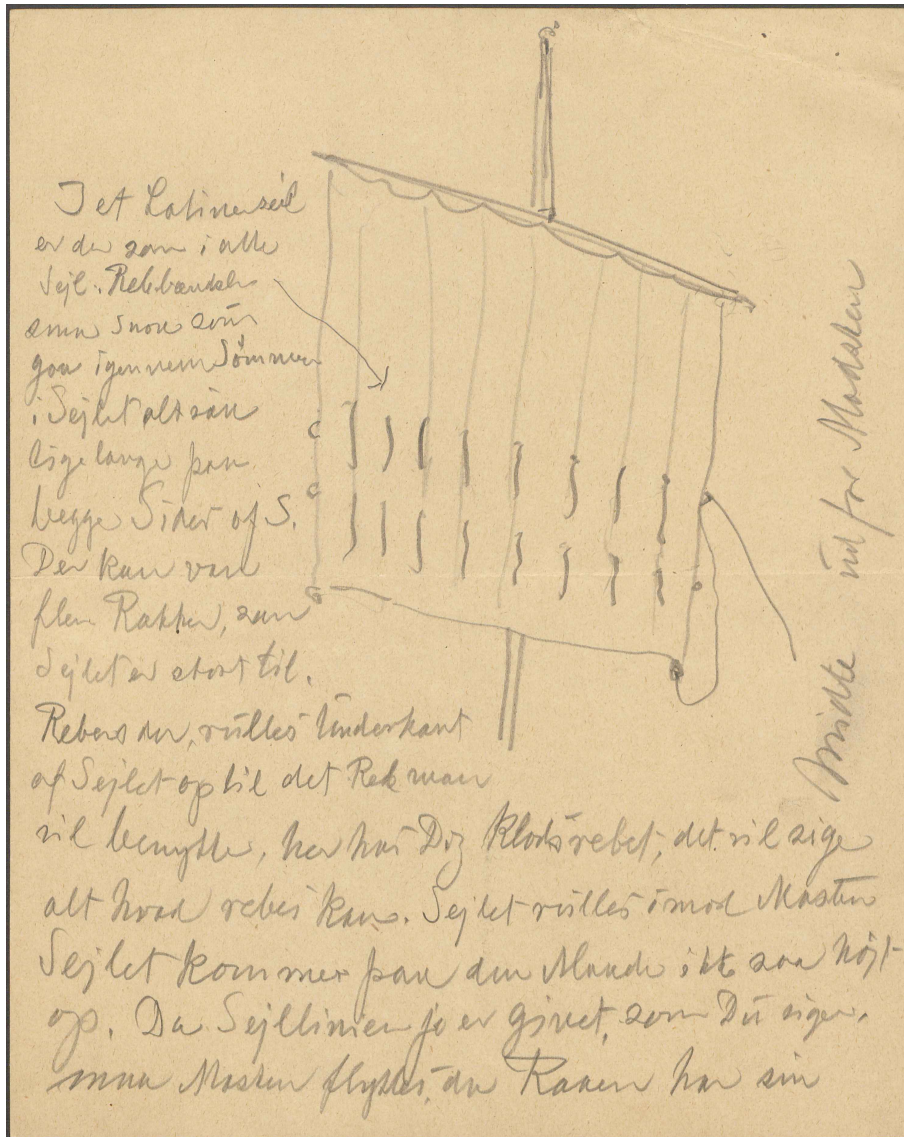 I et Latinerseil
er der som i alle
Sejl. Rebbaandsler
smaa Snore som
gaa igennem Sömmen
i Sejlet altsaa
lige lange paa
begge Sider af S.
Der kan være
flere Rækker, saa
Sejlet er stort til.
Rebes der, rulles Underkant
af Sejlet op til det Reb man
vil benytte, her hos Dig Klodsrebet, det vil sige
alt hvad rebes kan. Sejlet rulles imod Masten
Sejlet kommer paa den Maade ikke saa højt
op. Da Sejllinien jo er givet, som Du siger,
maa Masten flyttes, da Raaen har sin
Midte ud for Masten